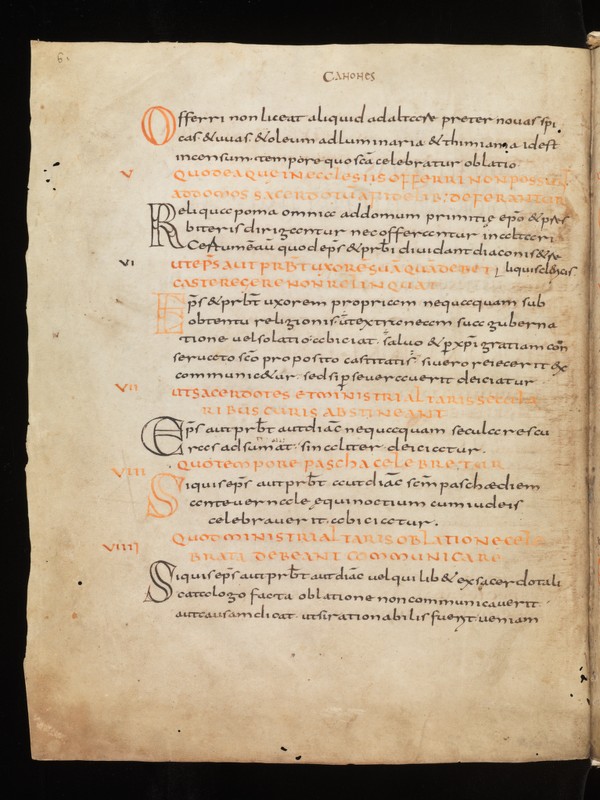 6.
CANONES
Offerri non liceat aliquid ad altare preter novas spi
cas & uvas. & oleum ad luminaria & thimiama idest
incensum tempore quo scā celebratur oblatio
V QUOD EA QUE IN ECCLESIIS OFFERRI NON POSSUNT
AD DOMOS SACERDOTŪ A FIDELIB; DEFERANTUR
Reliqua poma omnia ad domum primitię epō & prēs
biteris dirigantur nec offerantur in altari
Certum ē aū quod ep̄s & prb̄i dividant diaconis & re
VI UT EP̄S AUT PRB̄T UXORĒ SUĀ QUĀ DEBET liquis clericis.
CASTE REGERE NON RELINQUAT
Ep̄s & prb̄t uxorem propriam nequaquam sub
obtentu religionis
tione vel solatio abiciat salvo & p xp̄i gratiam con
servato scō proposito castitatis si vero reiecerit ex
communic&ur. sed si pseveraverit deiciatur
VII UT SACERDOTES ET MINISTRI ALTARIS SECULA
RIBUS CURIS ABSTINEANT
Ep̄s aut prb̄t aut diac̄ nequaquam seculares cu
ras adsumat. sin aliter deiciatur.
VIII QUO TEMPORE PASCHA CELEBRETUR
Siquis ep̄s aut prb̄t aut diac̄ scm̄ paschæ diem
ante vernale equinoctium cum iudeis
celebraverit. abiciatur.
VIIII QUOD MINISTRI ALTARIS OBLATIONE CELE
BRATA DEBEANT COMMUNICARE
Siquis ep̄s aut prb̄t aut diac̄ vel qui lib& ex sacerdotali
catalogo facta oblatione non communicaverit
aut causam dicat. ut si rationabilis fuerit veniam